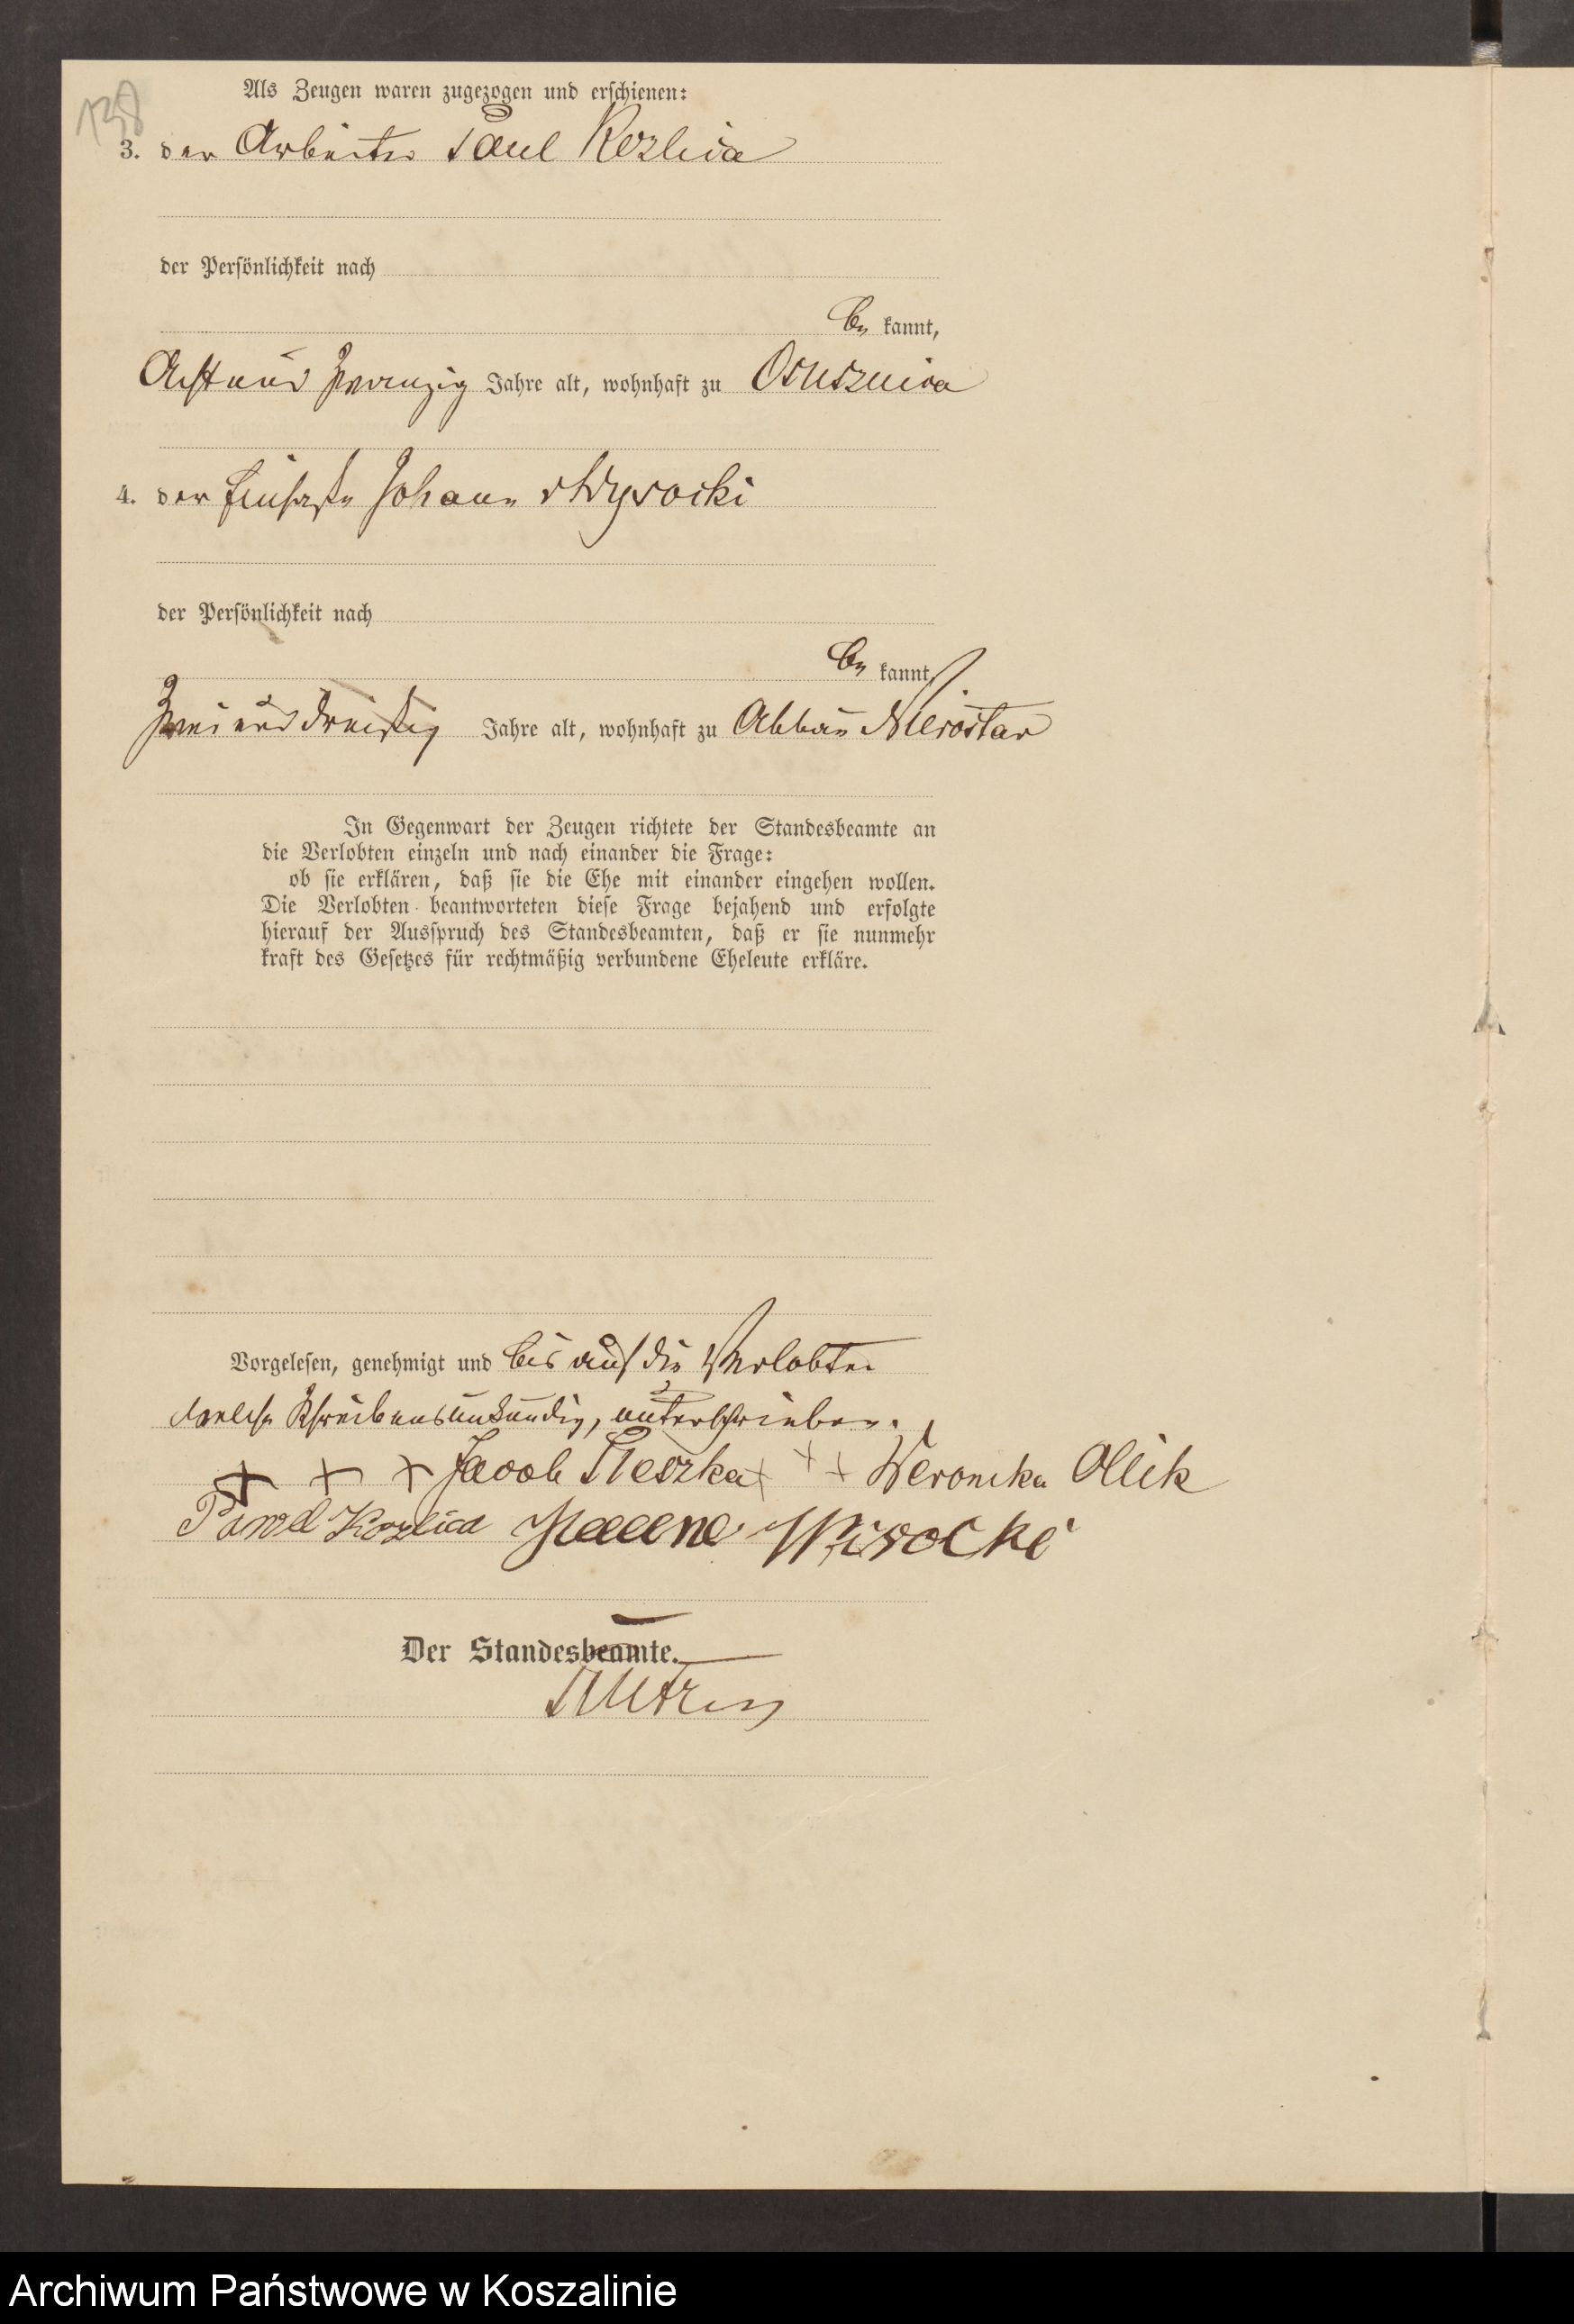 138
Als Zeugen waren zugezogen und erschienen:
3. der Arbeiter Paul Kozlica
der Persönlichkeit nach
be kannt,
Acht und zwanzig Jahre alt, wohnhaft zu Osusznica
4. der Einsasse Johann Wysocki
der Persönlichkeit nach
be kannt,
Zwei und dreißig Jahre alt, wohnhaft zu Abbau
In Gegenwart der Zeugen richtete der Standesbeamte an
die Verlobten einzeln und nach einander die Frage:
ob sie erklären, daß sie die Ehe mit einander eingehen wollen.
Die Verlobten beantworteten diese Frage bejahend und erfolgte
hierauf der Ausspruch des Standesbeamten, daß er sie nunmehr
kraft des Gesetzes für rechtmäßig verbundene Eheleute erkläre.
Vorgelesen, genehmigt und bis auf die Verlobten
welche Schreibensunkundig, unterschrieben.
+ + + Jacob + + + Veronika Ollik
Pawel Kozlica Wisocki
Der Standesbeamte.
Archiwum Państwowe w Koszalinie